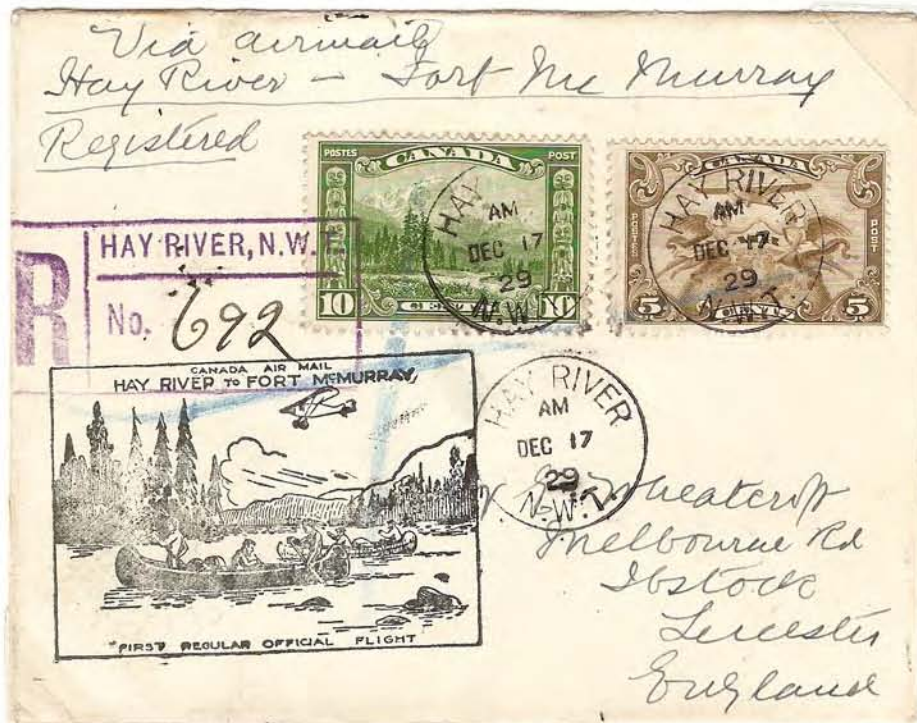 Via airmail
Hay River - Fort Mc Murray
Registered
POSTES CANADA POST
HAY RIVER
AM
DEC 17
29
N.W.T.
10 CENTS 10
CANADA
POSTES POST
HAY RIVER
AM
DEC 17
29
N.W.T.
5 CENTS 5
R
HAY RIVER, N.W.T.
No. 692
CANADA AIR MAIL
HAY RIVER TO FORT McMURRAY
FIRST REGULAR OFFICIAL FLIGHT
HAY RIVER
AM
DEC 17
29
N.W.T.
Wheatcroft
Melbourne Rd
Ibstock
Leicester
England